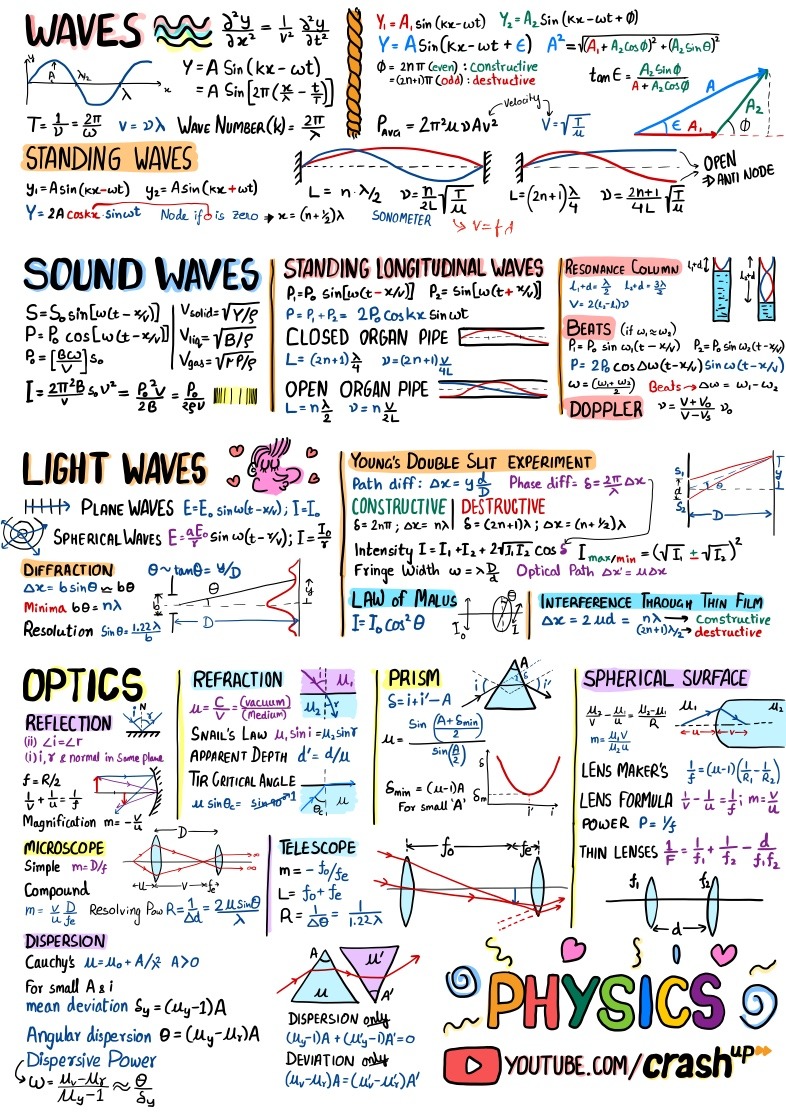 WAVES
∂²y/∂x² = 1/v² ∂²y/∂t²
y A λ/2 λ x
Y = A Sin (kx - wt)
= A Sin [2π (x/λ - t/T)]
T = 1/ν = 2π/ω   v = νλ   WAVE NUMBER(k) = 2π/λ
Y₁ = A₁ sin (kx-wt)   Y₂ = A₂ Sin (kx-wt+Ø)
Y = A Sin(kx-wt+ε)   A² = √(A₁+A₂cosØ)²+(A₂Sinθ)²
Ø = 2nπ (even) : constructive
= (2n+1)π (odd) : destructive
tanε = A₂SinØ/A+A₂CosØ
velocity
P_AVG = 2π²μνAν²   V = √T/μ
A A₂ ε A₁ Ø
STANDING WAVES
y₁ = Asin(kx-wt)   y₂ = Asin(kx+wt)
Y = 2A coskx · sinωt   Node if is zero → x = (n+½)λ
L = n·λ/2   ν = n/2L √T/μ
SONOMETER   ↪ v = fλ
L = (2n+1)λ/4   ν = 2n+1/4L √T/μ
OPEN ⇒ ANTI NODE
SOUND WAVES
S = S₀ sin[ω(t-x/v)]
P = P₀ cos[ω(t-x/v)]
P₀ = [Bω/v]s₀
I = 2π²B/v s₀ν² = P₀²v/2B = P₀/2ρv
Vsolid = √Y/ρ
Vliq = √B/ρ
Vgas = √rP/ρ
STANDING LONGITUDINAL WAVES
P₁ = P₀ sin[ω(t-x/v)]   P₂ = sin[ω(t+x/v)]
P = P₁+P₂ = 2P₀coskx sinωt
CLOSED ORGAN PIPE
L = (2n+1)λ/4   ν = (2n+1) v/4L
OPEN ORGAN PIPE
L = n λ/2   ν = n V/2L
RESONANCE COLUMN
l₁+d = λ/2   l₂+d = 3λ/4
V = 2(l₂-l₁)ν
l₁+d   l₂+d
BEATS (if ω₁≈ω₂)
P₁ = P₀ sin ω₁(t-x/v)   P₂ = P₀ sin ω₂(t-x/v)
P = 2P₀ cosΔω(t-x/v) Sinω(t-x/v)
ω = (ω₁+ω₂)/2   Beats → Δω = ω₁-ω₂
DOPPLER   ν = V+V₀/V-Vs ν₀
LIGHT WAVES
PLANE WAVES E = E₀ sinω(t-x/v); I = I₀
SPHERICAL WAVES E = aE₀/r sinω(t-r/v); I = I₀/r
DIFFRACTION   θ ~ tanθ = y/D
Δx = bsinθ ≈ bθ
Minima bθ = nλ
Resolution Sinθ = 1.22λ/b
b θ y D
YOUNG'S DOUBLE SLIT EXPERIMENT
Path diff: Δx = y d/D   Phase diff = δ = 2π/λ Δx
CONSTRUCTIVE | DESTRUCTIVE
δ = 2nπ ; Δx = nλ   δ = (2n+1)λ ; Δx = (n+½)λ
Intensity I = I₁+I₂+2√I₁I₂ cos δ   I max/min = (√I₁ ± √I₂)²
Fringe Width ω = λ D/d   Optical Path Δx' = μΔx
S₁ d S₂ θ y D
LAW of MALUS
I = I₀ cos²θ
I₀ θ I
INTERFERENCE THROUGH THIN FILM
Δx = 2μd = nλ → constructive
(2n+1)λ/2 → destructive
OPTICS
REFLECTION
i N r
(ii) ∠i = ∠r
(i) i, r & normal in Same plane
f = R/2
1/v + 1/u = 1/f
Magnification m = -v/u
REFRACTION
i μ₁ μ₂ r
μ = C/V = (vacuum)/(Medium)
SNAIL'S LAW μ₁ sin i = μ₂ sin r
APPARENT DEPTH d' = d/μ
TIR CRITICAL ANGLE
μ sinθc = sin90° 1
θc μ
PRISM
δ = i+i'-A
μ = Sin (A+δmin/2)/sin(A/2)
δmin = (μ-1)A
For small 'A'
A i δ i'
δ δm i' i
SPHERICAL SURFACE
μ₂/V - μ₁/u = μ₂-μ₁/R
m = μ₁V/μ₂u
μ₁ μ₂ u v
LENS MAKER'S 1/f = (μ-1)(1/R₁ - 1/R₂)
LENS FORMULA 1/v - 1/u = 1/f ; m = v/u
POWER P = 1/f
THIN LENSES 1/F = 1/f₁ + 1/f₂ - d/f₁f₂
f₁ f₂ d
MICROSCOPE
Simple m = D/f
Compound
m = v/u D/fe   Resolving Pow R = 1/Δd = 2μsinθ/λ
D ∞ ∞ u v fe
TELESCOPE
m = -f₀/fe
L = f₀+fe
R = 1/Δθ = 1/1.22λ
f₀ fe
DISPERSION
Cauchy's μ = μ₀ + A/λ² A>0
For small A & i
mean deviation δy = (μy-1)A
Angular dispersion θ = (μy-μr)A
Dispersive Power
ω = μv-μr/μy-1 ≈ θ/δy
A μ μ' A'
DISPERSION only
(μy-1)A + (μ'y-1)A' = 0
DEVIATION only
(μv-μr)A = (μ'v-μ'r)A'
PHYSICS
YOUTUBE.COM/crash up